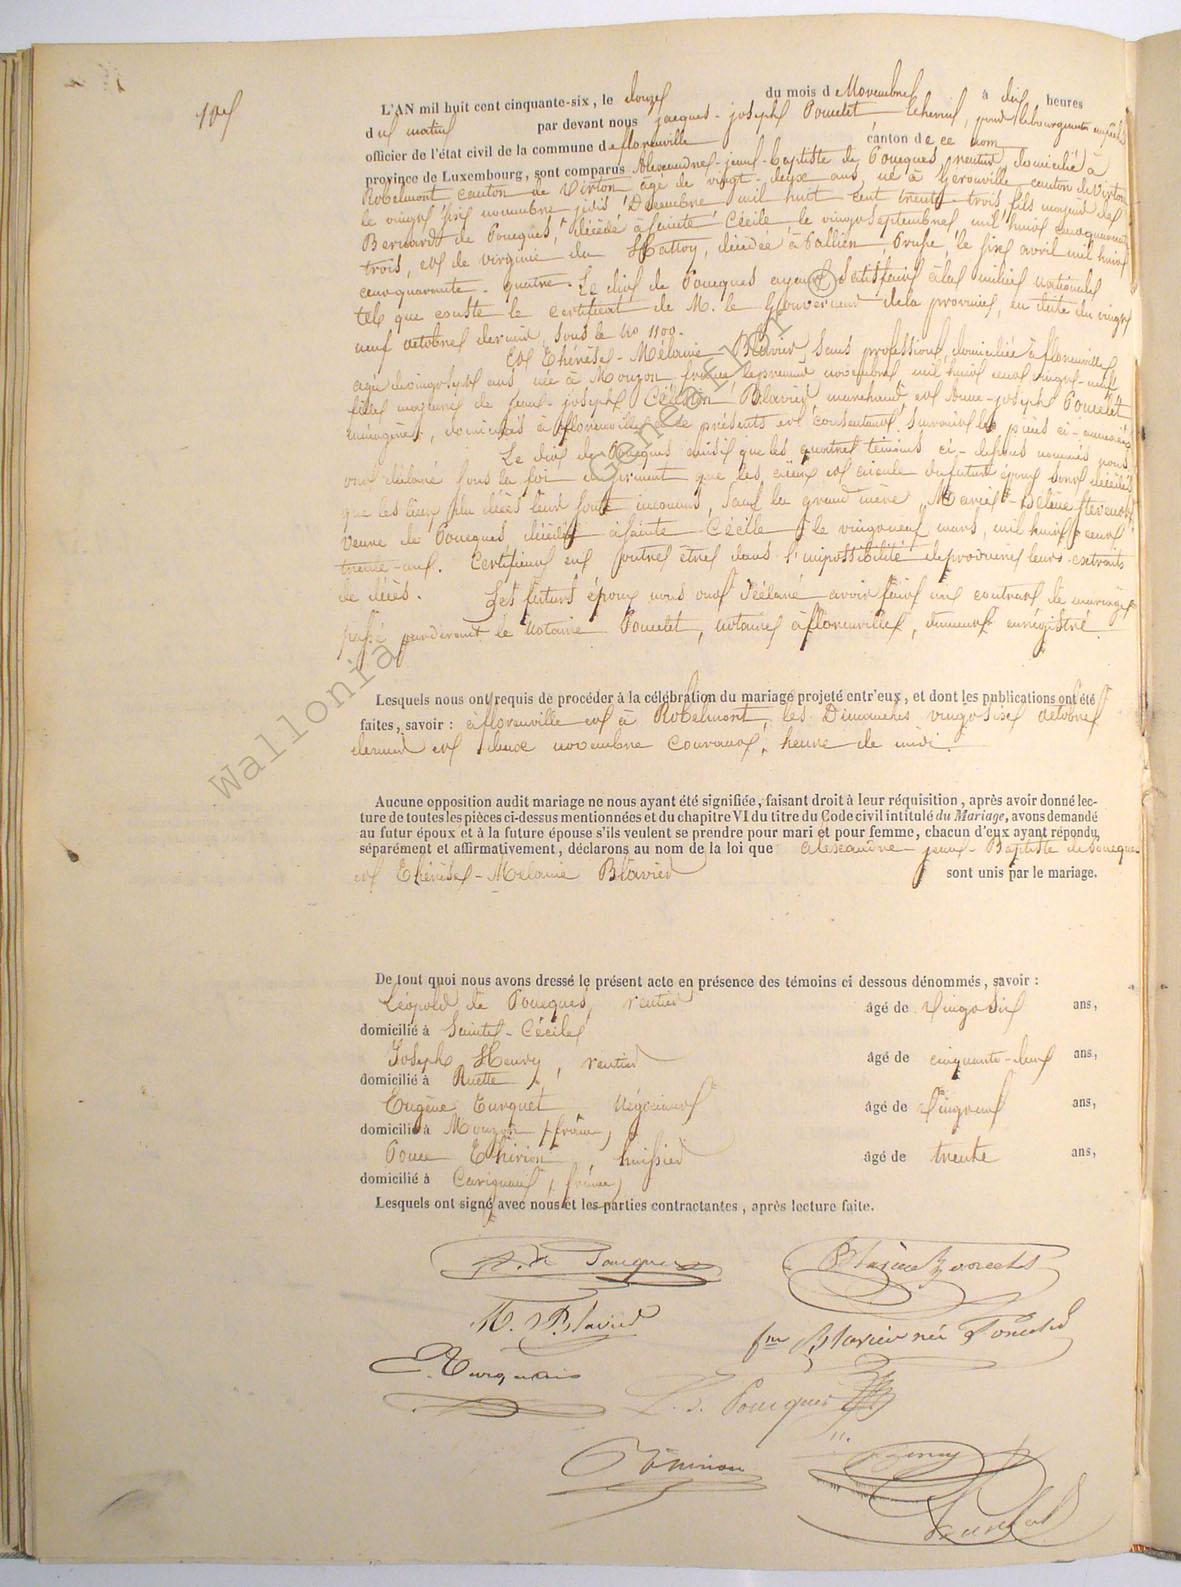 L'AN mil huit cent cinquante-six, le douze du mois de Novembre à dix heures
du matin par devant nous jacques-joseph Poncelet Echevin, pour le bourgmestre
officier de l'état civil de la commune de florenville canton de ce nom
province de Luxembourg, sont comparus Alexandre-jean-baptiste de Pouques, rentier, domicilié à
Robelmont canton de Virton âgé de vingt-deux ans, né à Gerouville canton de Virton
le vingt six novembre mil huit cent trente trois, fils majeur de
Bernard de Pouques, décédé à Sainte Cécile le vingt septembre mil huit cent quarante
trois, et de virginie du Hattoy, décédée à Prusse, le six avril mil huit
cent quarante-quatre. Le dit de Pouques ayant satisfait à la milice nationale
tel que conste le certificat de M. le Gouverneur de la province, en date du vingt
neuf octobre dernier, sous le No 1100.
Et Thérèse-Mélanie Blavier, sans profession, domiciliée à florenville
agée de vingt sept ans, née à Mouzon france le premier novembre mil huit cent vingt-neuf
fille majeure de jean-joseph Célestin Blavier marchand et joseph Poncelet
ménagère, domiciliés à florenville, présents et consentant, suivant les pièces ci-annexées
Le dit de Pouques ainsi que les quatre témoins ci-dessous nommés nous
ont déclaré sous la foi du serment que les aïeux et aïeule du futur époux sont décédés
que les lieux du décès leur sont inconnus, sauf la grand mère Marie-Hélène
Veuve de Pouques, décédée à Sainte Cécile le vingt neuf mars, mil huit cent
trente-un. Certifient en outre être dans l'impossibilité de produire leurs extraits
de décès. Les futurs époux nous ont déclaré avoir fait un contrat de mariage
passé pardevant le Notaire Poncelet, notaire à florenville, dument enregistré.
Lesquels nous ont requis de procéder à la célébration du mariage projeté entr'eux, et dont les publications ont été
faites, savoir : à florenville et à Robelmont, les Dimanches vingt six octobre
dernier et deux novembre courant, heure de midi.
Aucune opposition audit mariage ne nous ayant été signifiée, faisant droit à leur réquisition, après avoir donné lec-
ture de toutes les pièces ci-dessus mentionnées et du chapitre VI du titre du Code civil intitulé du Mariage, avons demandé
au futur époux et à la future épouse s'ils veulent se prendre pour mari et pour femme, chacun d'eux ayant répondu
séparément et affirmativement, déclarons au nom de la loi que alexandre-jean-Baptiste de Pouques
et Thérèse-Mélanie Blavier sont unis par le mariage.
De tout quoi nous avons dressé le présent acte en présence des témoins ci dessous dénommés, savoir :
Léopold de Pouques, rentier âgé de vingt six ans,
domicilié à Sainte-Cécile
Joseph Henry, rentier âgé de cinquante-deux ans,
domicilié à Ruette
Eugène Turquet Négociant âgé de vingt neuf ans,
domicilié à Mouzon (france)
Thirion, huissier âgé de trente ans,
domicilié à Carignan (france)
Lesquels ont signé avec nous et les parties contractantes, après lecture faite.
A. de Pouques
Blavier Poncelet
M. Blavier
fme Blavier née Poncelet
L. d. Pouques
Thirion
Henry
Poncelet
Wallonia Genealor